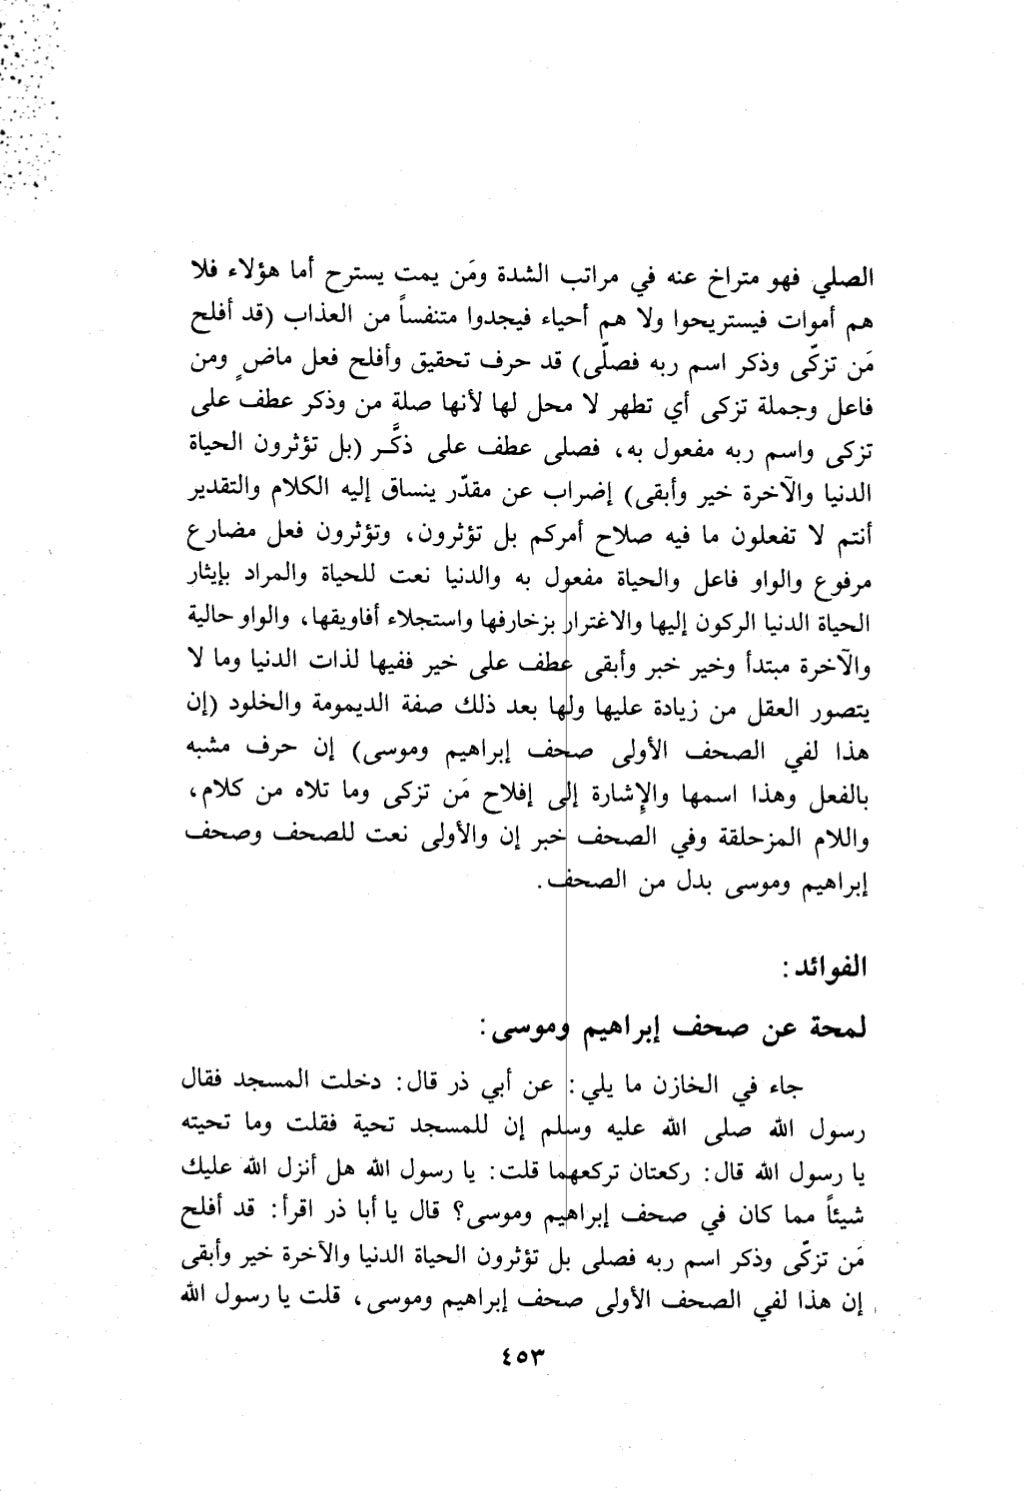 الصلي فهو متراخ عنه في مراتب الشدة ومَن يمت يسترح أما هؤلاء فلا
هم أموات فيستريحوا ولا هم أحياء فيجدوا متنفساً من العذاب (قد أفلح
مَن تزكّى وذكر اسم ربه فصلّى) قد حرف تحقيق وأفلح فعل ماضٍ ومن
فاعل وجملة تزكى أي تطهر لا محل لها لأنها صلة من وذكر عطف على
تزكى واسم ربه مفعول به، فصلى عطف على ذكَّر (بل تؤثرون الحياة
الدنيا والآخرة خير وأبقى) إضراب عن مقدّر ينساق إليه الكلام والتقدير
أنتم لا تفعلون ما فيه صلاح أمركم بل تؤثرون، وتؤثرون فعل مضارع
مرفوع والواو فاعل والحياة مفعول به والدنيا نعت للحياة والمراد بإيثار
الحياة الدنيا الركون إليها والاغترار بزخارفها واستجلاء أفاويقها، والواو حالية
والآخرة مبتدأ وخير خبر وأبقى عطف على خير ففيها لذات الدنيا وما لا
يتصور العقل من زيادة عليها ولها بعد ذلك صفة الديمومة والخلود (إن
هذا لفي الصحف الأولى صحف إبراهيم وموسى) إن حرف مشبه
بالفعل وهذا اسمها والإشارة إلى إفلاح مَن تزكى وما تلاه من كلام،
واللام المزحلقة وفي الصحف خبر إن والأولى نعت للصحف وصحف
إبراهيم وموسى بدل من الصحف.
الفوائد:
لمحة عن صحف إبراهيم وموسى:
جاء في الخازن ما يلي: عن أبي ذر قال: دخلت المسجد فقال
رسول الله صلى الله عليه وسلم إن للمسجد تحية فقلت وما تحيته
يا رسول الله قال: ركعتان تركعهما قلت: يا رسول الله هل أنزل الله عليك
شيئاً مما كان في صحف إبراهيم وموسى؟ قال يا أبا ذر اقرأ: قد أفلح
مَن تزكّى وذكر اسم ربه فصلى بل تؤثرون الحياة الدنيا والآخرة خير وأبقى
إن هذا لفي الصحف الأولى صحف إبراهيم وموسى، قلت يا رسول الله
٤٥٣